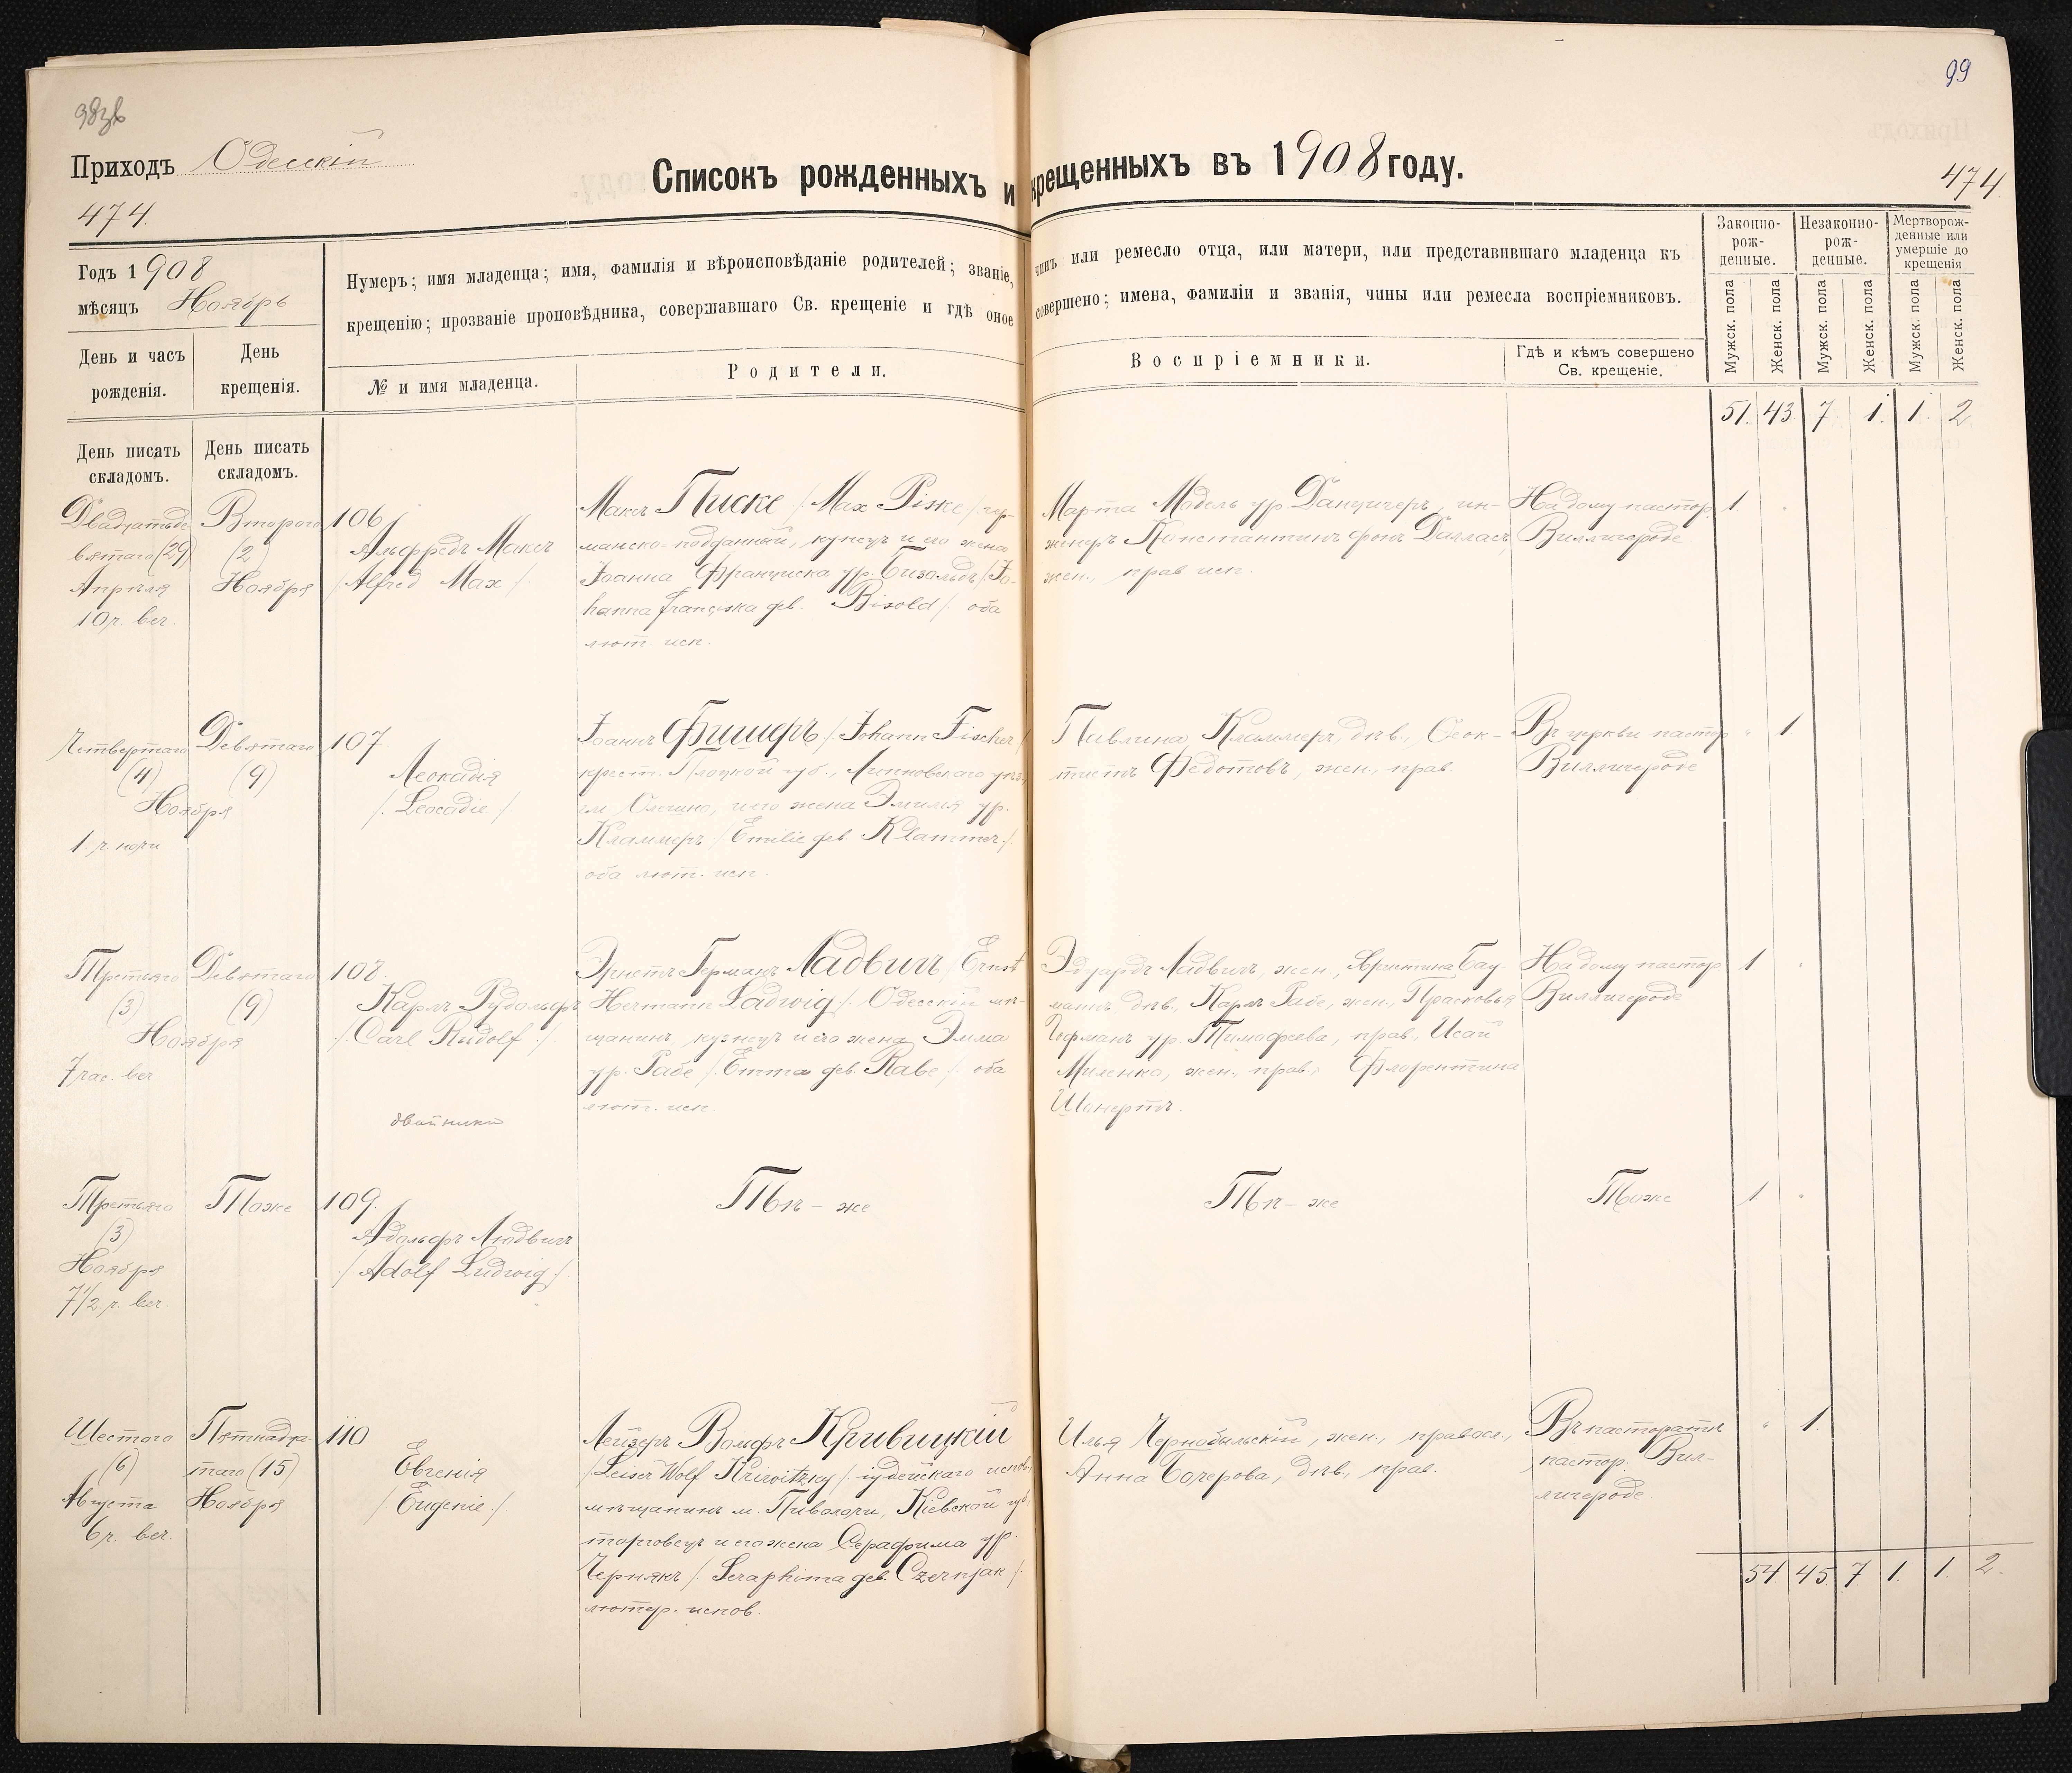 99
Приходъ Одесскій
Списокъ рожденныхъ и крещенныхъ въ 1908 году.
474.
474
Годъ 1908
мѣсяцъ Ноябрь
День и часъ рожденія.
День крещенія.
Нумеръ; имя младенца; имя, фамилія и вѣроисповѣданіе родителей; званіе, чинъ или ремесло отца, или матери, или представившаго младенца къ
крещенію; прозваніе проповѣдника, совершавшаго Св. крещеніе и гдѣ оное совершено; имена, фамиліи и званія, чины или ремесла воспріемниковъ.
№ и имя младенца.
Родители.
Воспріемники.
Гдѣ и кѣмъ совершено
Св. крещеніе.
Законно-
рож-
денные.
Незаконно-
рож-
денные.
Мертворож-
денные или
умершіе до
крещенія
Мужск. пола
Женск. пола
Мужск. пола
Женск. пола
Мужск. пола
Женск. пола
51. 43 7. 1. 1. 2
День писать
складомъ.
День писать
складомъ.
Двадцатьде
вятаго (29)
Апрѣля
10 ч. веч.
Второго
(2)
Ноября
106
Альфредъ Максъ
/Alfred Max/.
Максъ Писке /Max Piske/ гер-
манско-подданный, купецъ и его жена
Іоанна Франциска ур. Бизольдъ /Jo-
hanna Franziska geb. Bisold/. оба
лют. исп.
Марта Модель ур. Данцигеръ, ин-
женеръ Константинъ фонъ Далласъ,
жен., прав исп.
На дому пастор.
Виллигероде.
1
Четвертаго
(4)
Ноября
1. ч. ночи
Девятаго
(9)
107.
Леокадія
/. Leocadie /.
Іоаннъ Фишеръ /. Johann Fischer/
крест. Плоцкой губ., Липновскаго уѣз.,
и его жена Эмилія ур.
Кламмеръ /Emilie geb. Klammer./.
оба лют. исп.
Павлина Кламмеръ, дѣв., Феок-
тистъ Федотовъ, жен., прав.
Въ церкви пастор
Виллигероде
1
Третьяго
(3)
Ноября
7 час. веч
Девятаго
(9)
108.
Карлъ Рудольфъ
/. Carl Rudolf ./
двойники
Эрнстъ Германъ Ладвигъ /Ernst
Hermann Ladwig/. Одесскій мѣ-
щанинъ, кузнецъ и его жена Эмма
ур. Рабе /. Emma geb. Rabe /. оба
лют. исп.
Эдуардъ Ладвигъ, жен., Бау-
манъ, дѣв., Карлъ Рабе, жен., Прасковья
Гофманъ ур. Тимофеева, прав., Исай
Миленко, жен., прав., Флорентина
Шонертъ.
На дому пастор
Виллигероде
1
Третьяго
(3)
Ноября
7 1/2 ч. веч.
Тоже
109.
Адольфъ Людвигъ
/Adolf Ludwig/.
Тѣ-же
Тѣ-же
Тоже
1
Шестого
(6)
Августа
6 ч. веч.
Пятнадца-
таго (15)
Ноября
110
Евгенія
/Eugenie./
Лейзеръ Вольфъ Кривицкій
/Leiser Wolf Kriwitzky/. іудейскаго испов.,
мѣщанинъ м. Пиволочи, Кіевской губ.
торговецъ и его жена Серафима ур.
Чернякъ /. Seraphima geb. Czernjak /.
лютер. испов.
Илья Чернобыльскій, жен., правосл.,
Анна Бочерова, дѣв., прав.
Въ пасторатѣ
пастор. Вил-
лигероде.
1.
54 45. 7 1. 1. 2.